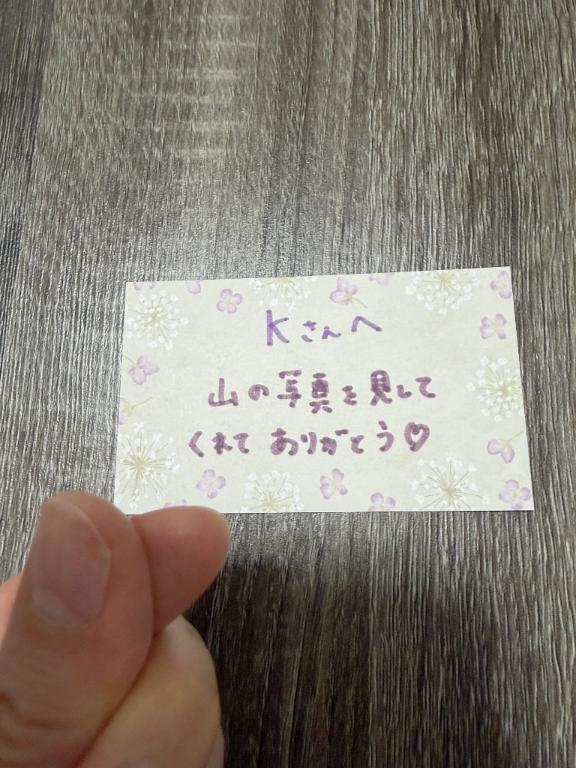 Kさんへ
山の写真を見して
くれて ありがとう♡